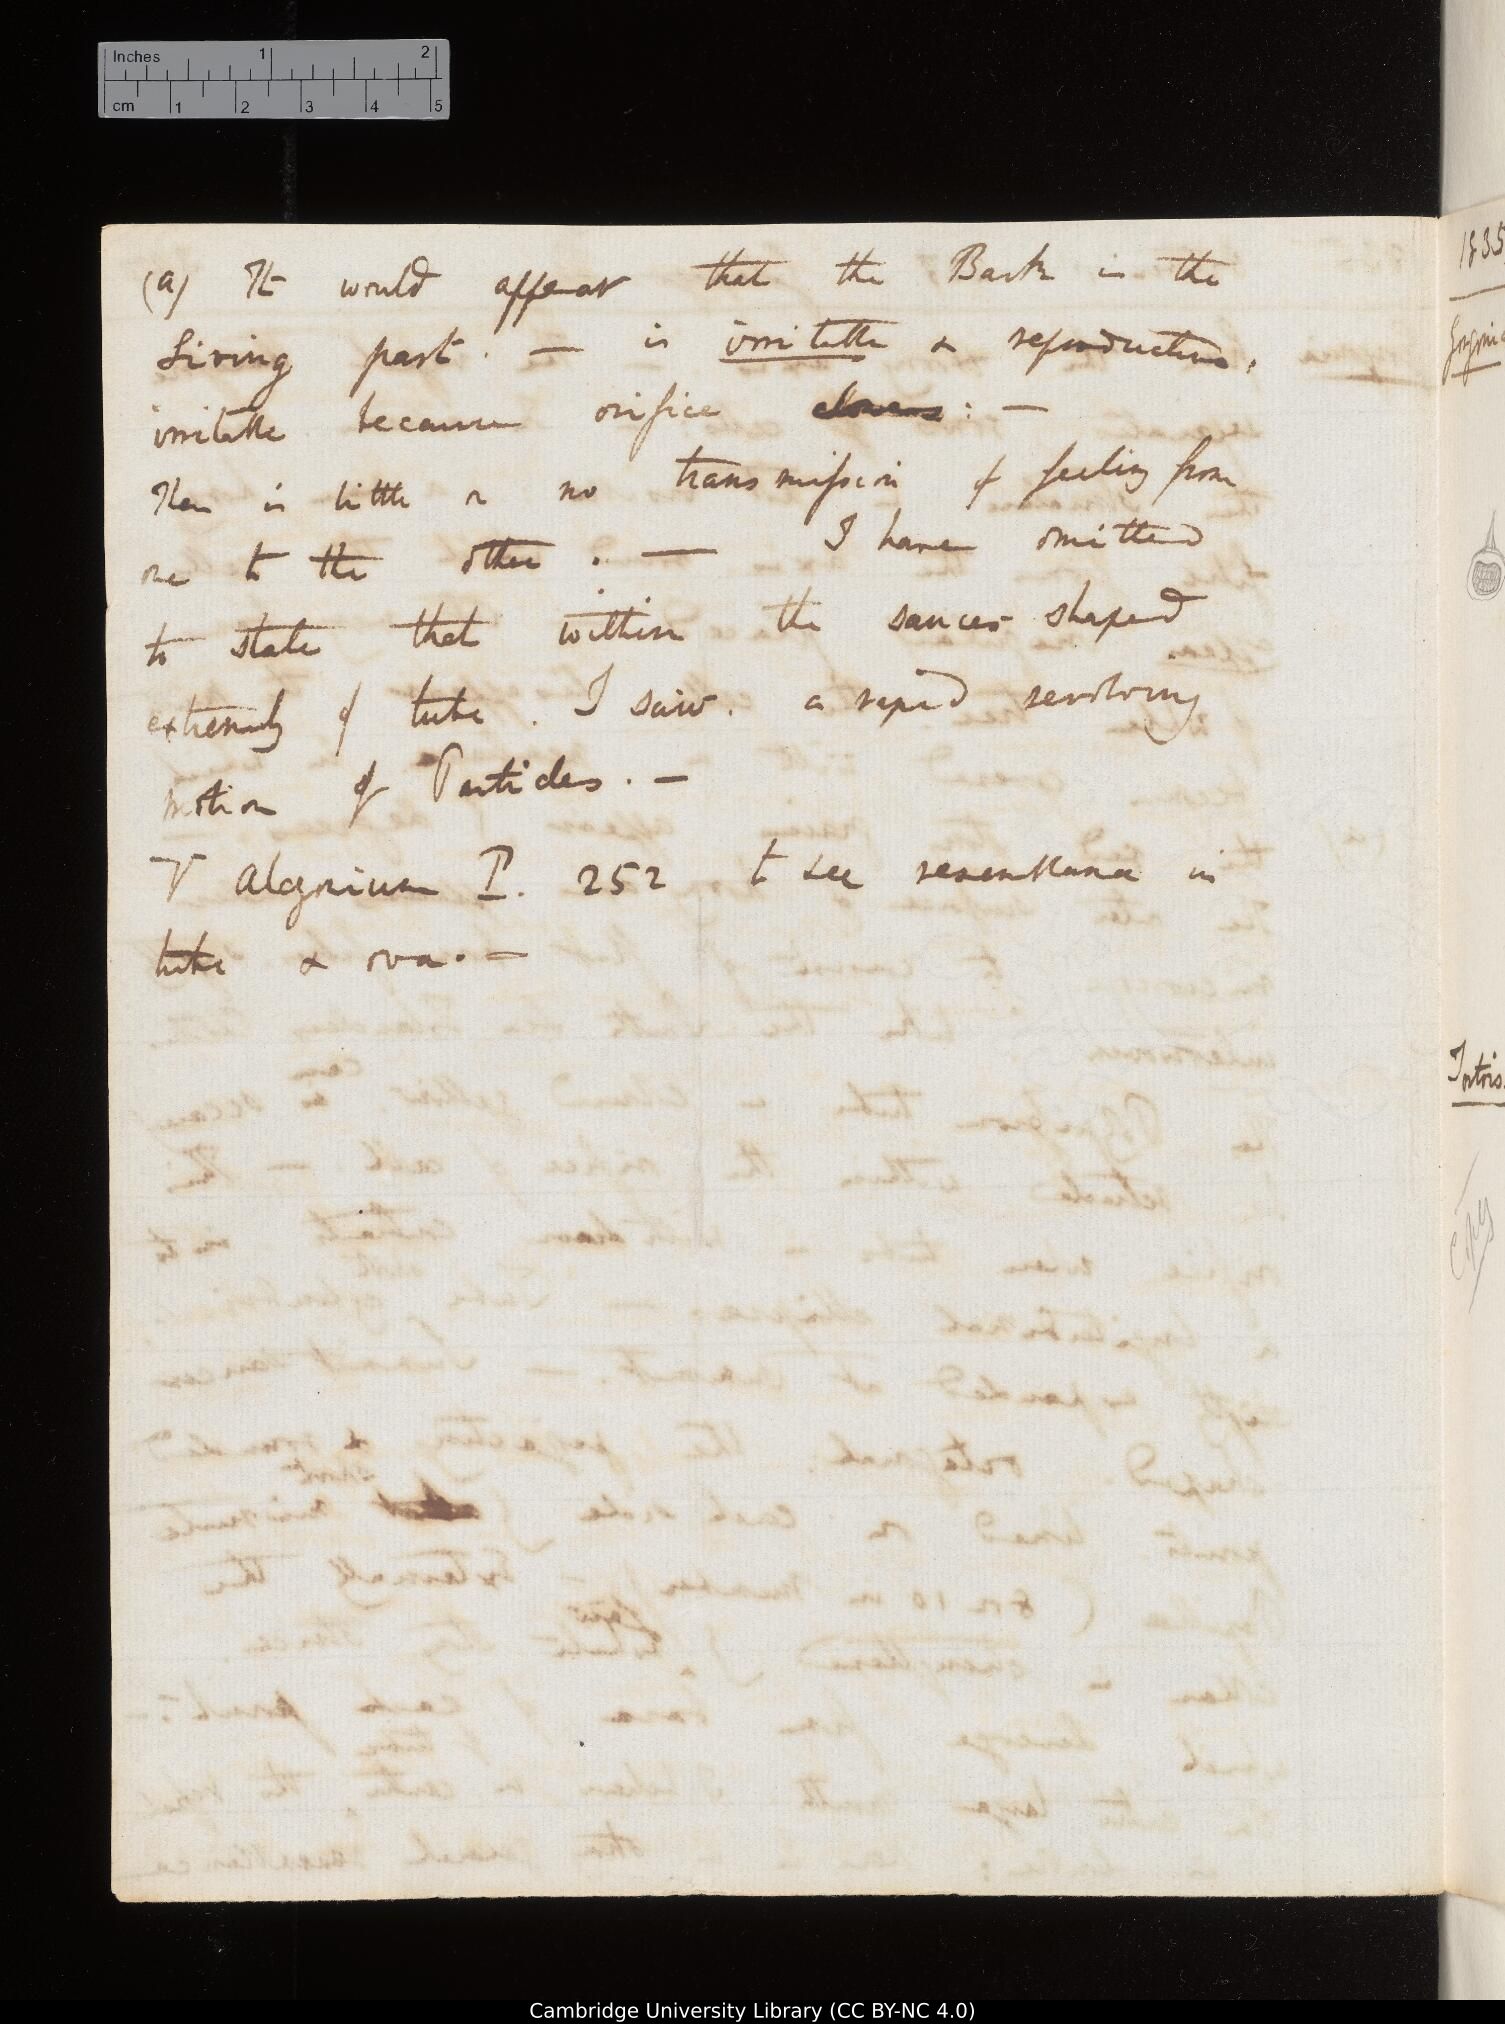 Inches 1 2
cm 1 2 3 4 5
(a) It would appear that the Bark is the
living part. — is irritable & reproductive,
irritable because orifice closes: —
There is little or no transmission of feeling from
one to the other. — I have omitted
to state that within the saucer shaped
extremity of tube. I saw. a rapid revolving
motion of Particles. —
V Alcyonium P. 252 to see resemblance in
tube & ova. —
1835
Gorgonia
Tortois
Copy
Cambridge University Library (CC BY-NC 4.0)